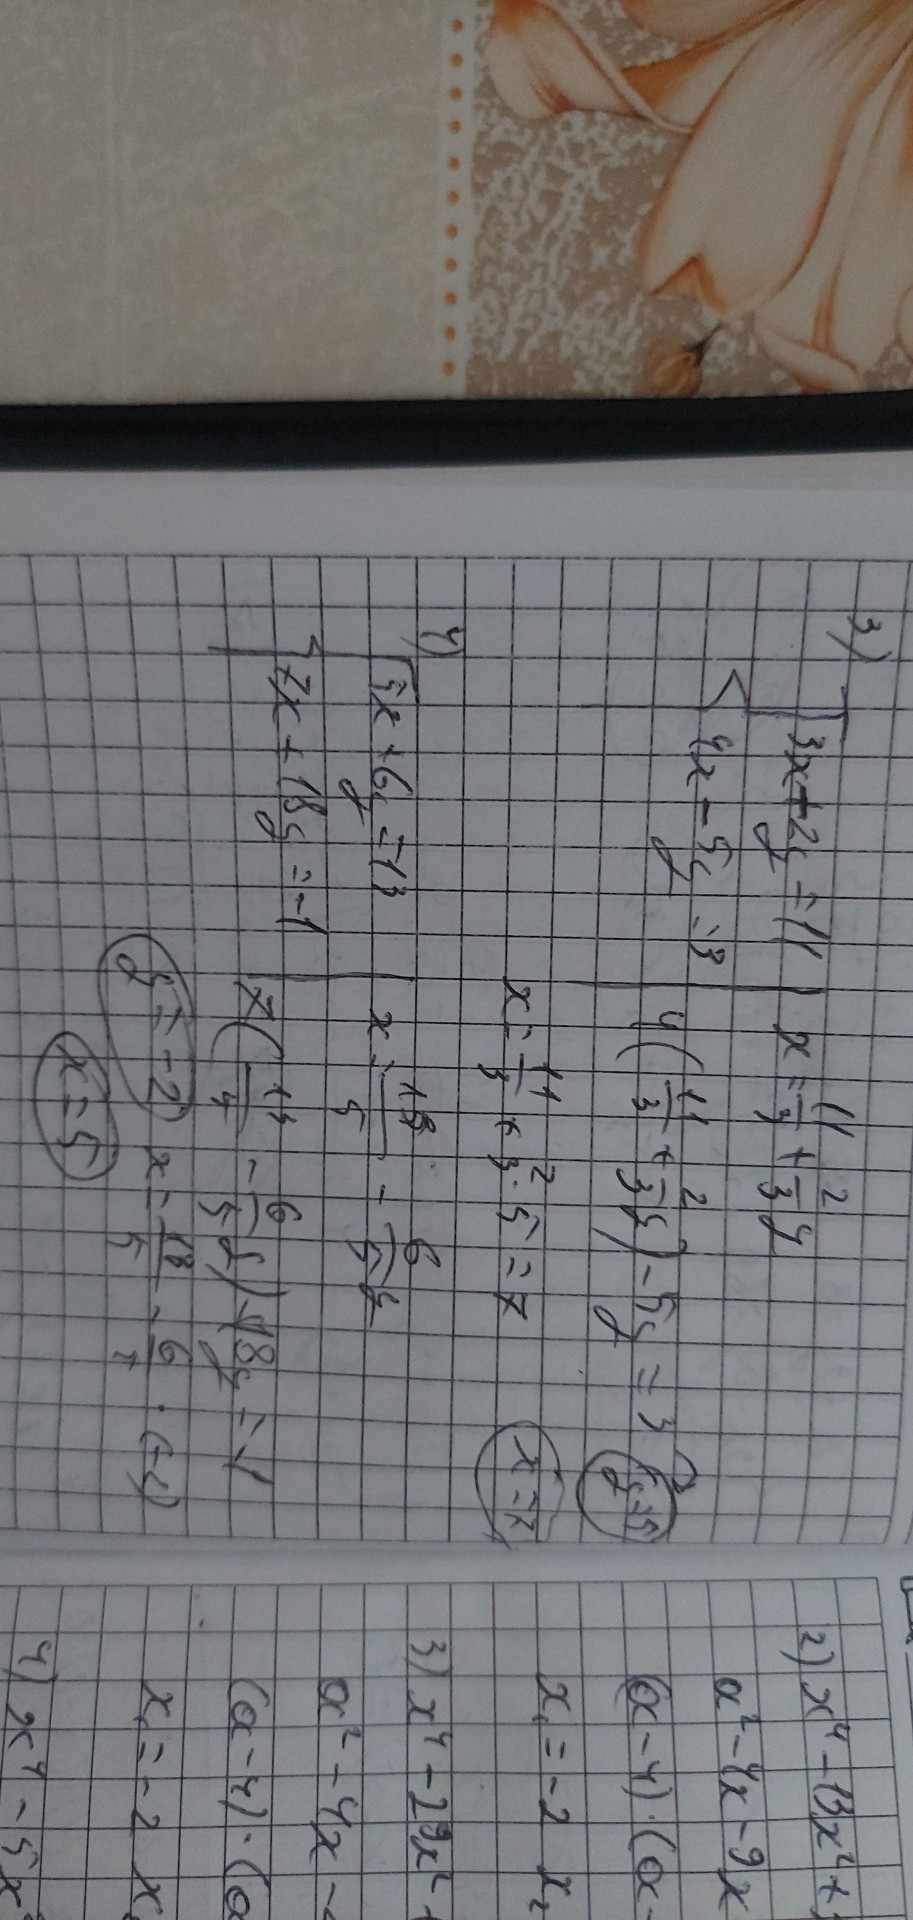 3)
3x+2y=11 | x=11/3+2/3y
4x-5y=3 | 4(11/3+2/3y)-5y=3 y=5
x=11/3+2/3·5=7 x=7
4)
5x+6y=13 | x=13/5-6/5y
7x+18y=-1
y=-2 x=13/5-6/5·(-2)
x=5
2) x⁴-13x²+
a²-4x-9x
(a-4)·(a-
x₁=-2 x₂
3) x⁴-29x²+
a²-4x-
(a-4)·(a
x₁=-2 x₂
4) x⁴-5x²